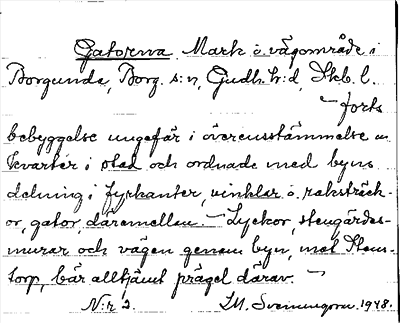 Gatorna. Mark o. vägområde i
Borgunda, Borg. s:n, Gudh. h:d, Skb. l.
— forts
bebyggelse ungefär i överensstämmelse m.
kvarter i stad och ordnade med byns
delning i fyrkanter, vinklar o. raksträck-
or, gator, däremellan. — Lyckor, stengärdes-
murar och vägen genom byn, mot Stens-
torp, bär alltjämt prägel därav. —
Nr 2. J.M. Sveningson. 1948.